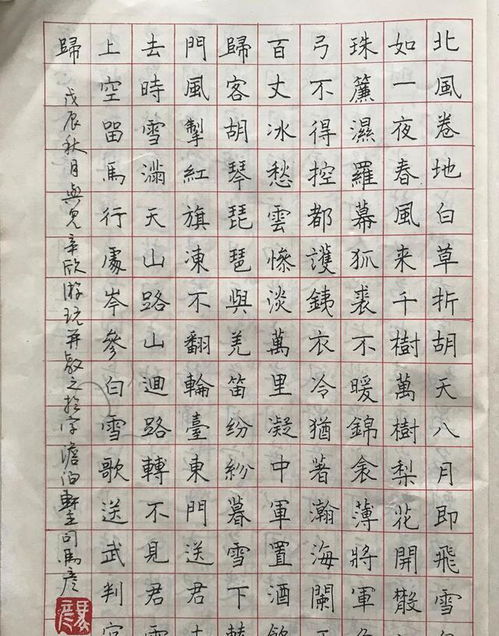 北風卷地白草折胡天八月即飛雪
如一夜春風来千樹萬樹梨花開散
珠簾濕羅幕狐裘不暖錦衾薄將軍
弓不得控都護銕衣冷猶著瀚海闌
百丈冰愁雲慘淡萬里凝中軍置酒
歸客胡琴琵琶與羌笛纷紛暮雪下
門風掣紅旗凍不翻輪臺東門送君
去時雪滿天山路山迴路轉不見君
上空留馬行處岑參白雪歌送武判
歸 戊辰秋月與兒辛欣游玩并啟之於字澹泊軒主司馬彦